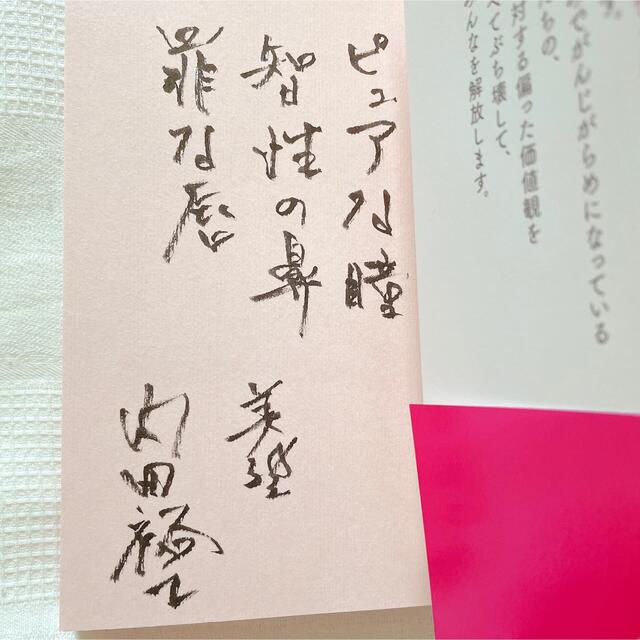 す。
がんじがらめになっている
ちの、
対する偏った価値観を
べてぶち壊して、
んなを解放します。
ピュアな瞳
智性の鼻
罪な唇
美塾
内田裕士